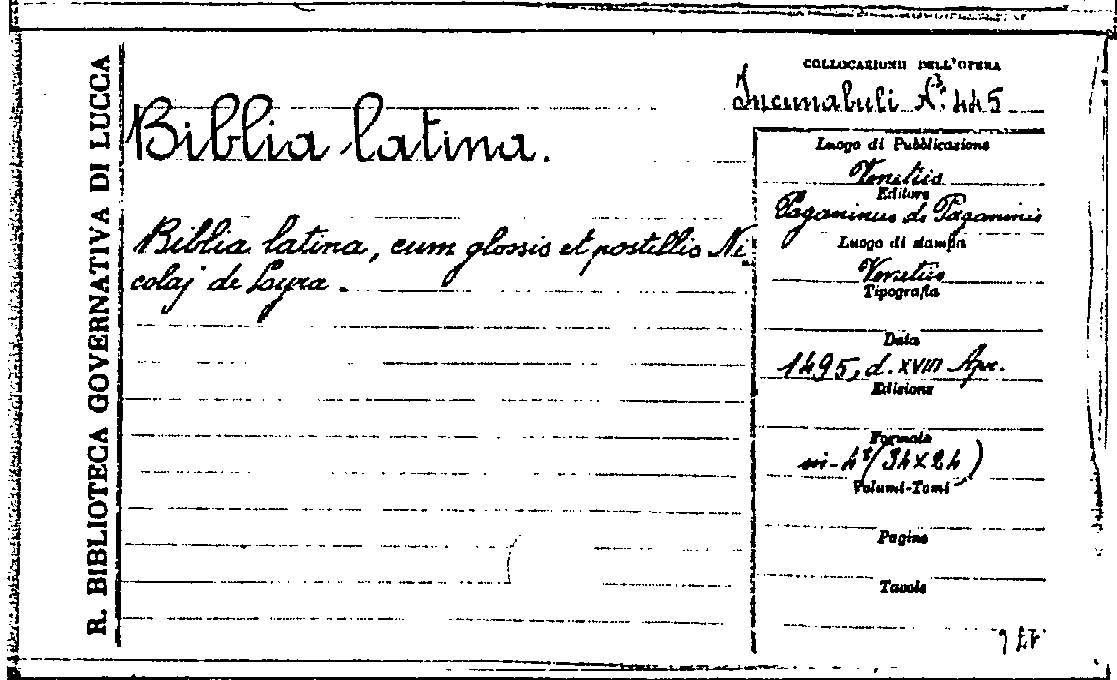 R. BIBLIOTECA GOVERNATIVA DI LUCCA
COLLOCAZIONE DELL'OPERA
Incunabuli N.° 445
Biblia latina.
Biblia latina, cum glossis et postillis Ni
colaj de Lyra.
Luogo di Pubblicazione
Venetiis
Editore
Paganinus de Paganinis
Luogo di stampa
Venetiis
Tipografia
Data
1495, d. XVIII Apr.
Edizione
Formato
in-4° (34×24)
Volumi-Tomi
Pagine
Tavole